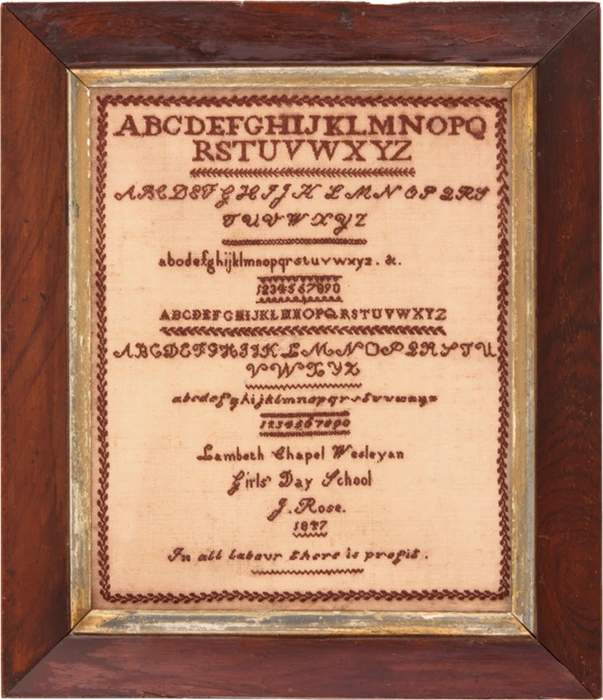 ABCDEFGHIJKLMNOPQ
RSTUVWXYZ
ABCDEFGHIJKLMNOPQRS
TUVWXYZ
abcdefghijklmnopqrstuvwxyz. &.
1234567890
ABCDEFGHIJKLMNOPQRSTUVWXYZ
ABCDEFGHIJKLMNOPQRSTU
VWXYZ
abcdefghijklmnopqrstuvwxyz
1234567890
Lambeth Chapel Wesleyan
Girls' Day School
J. Rose.
1847
In all labour there is profit.